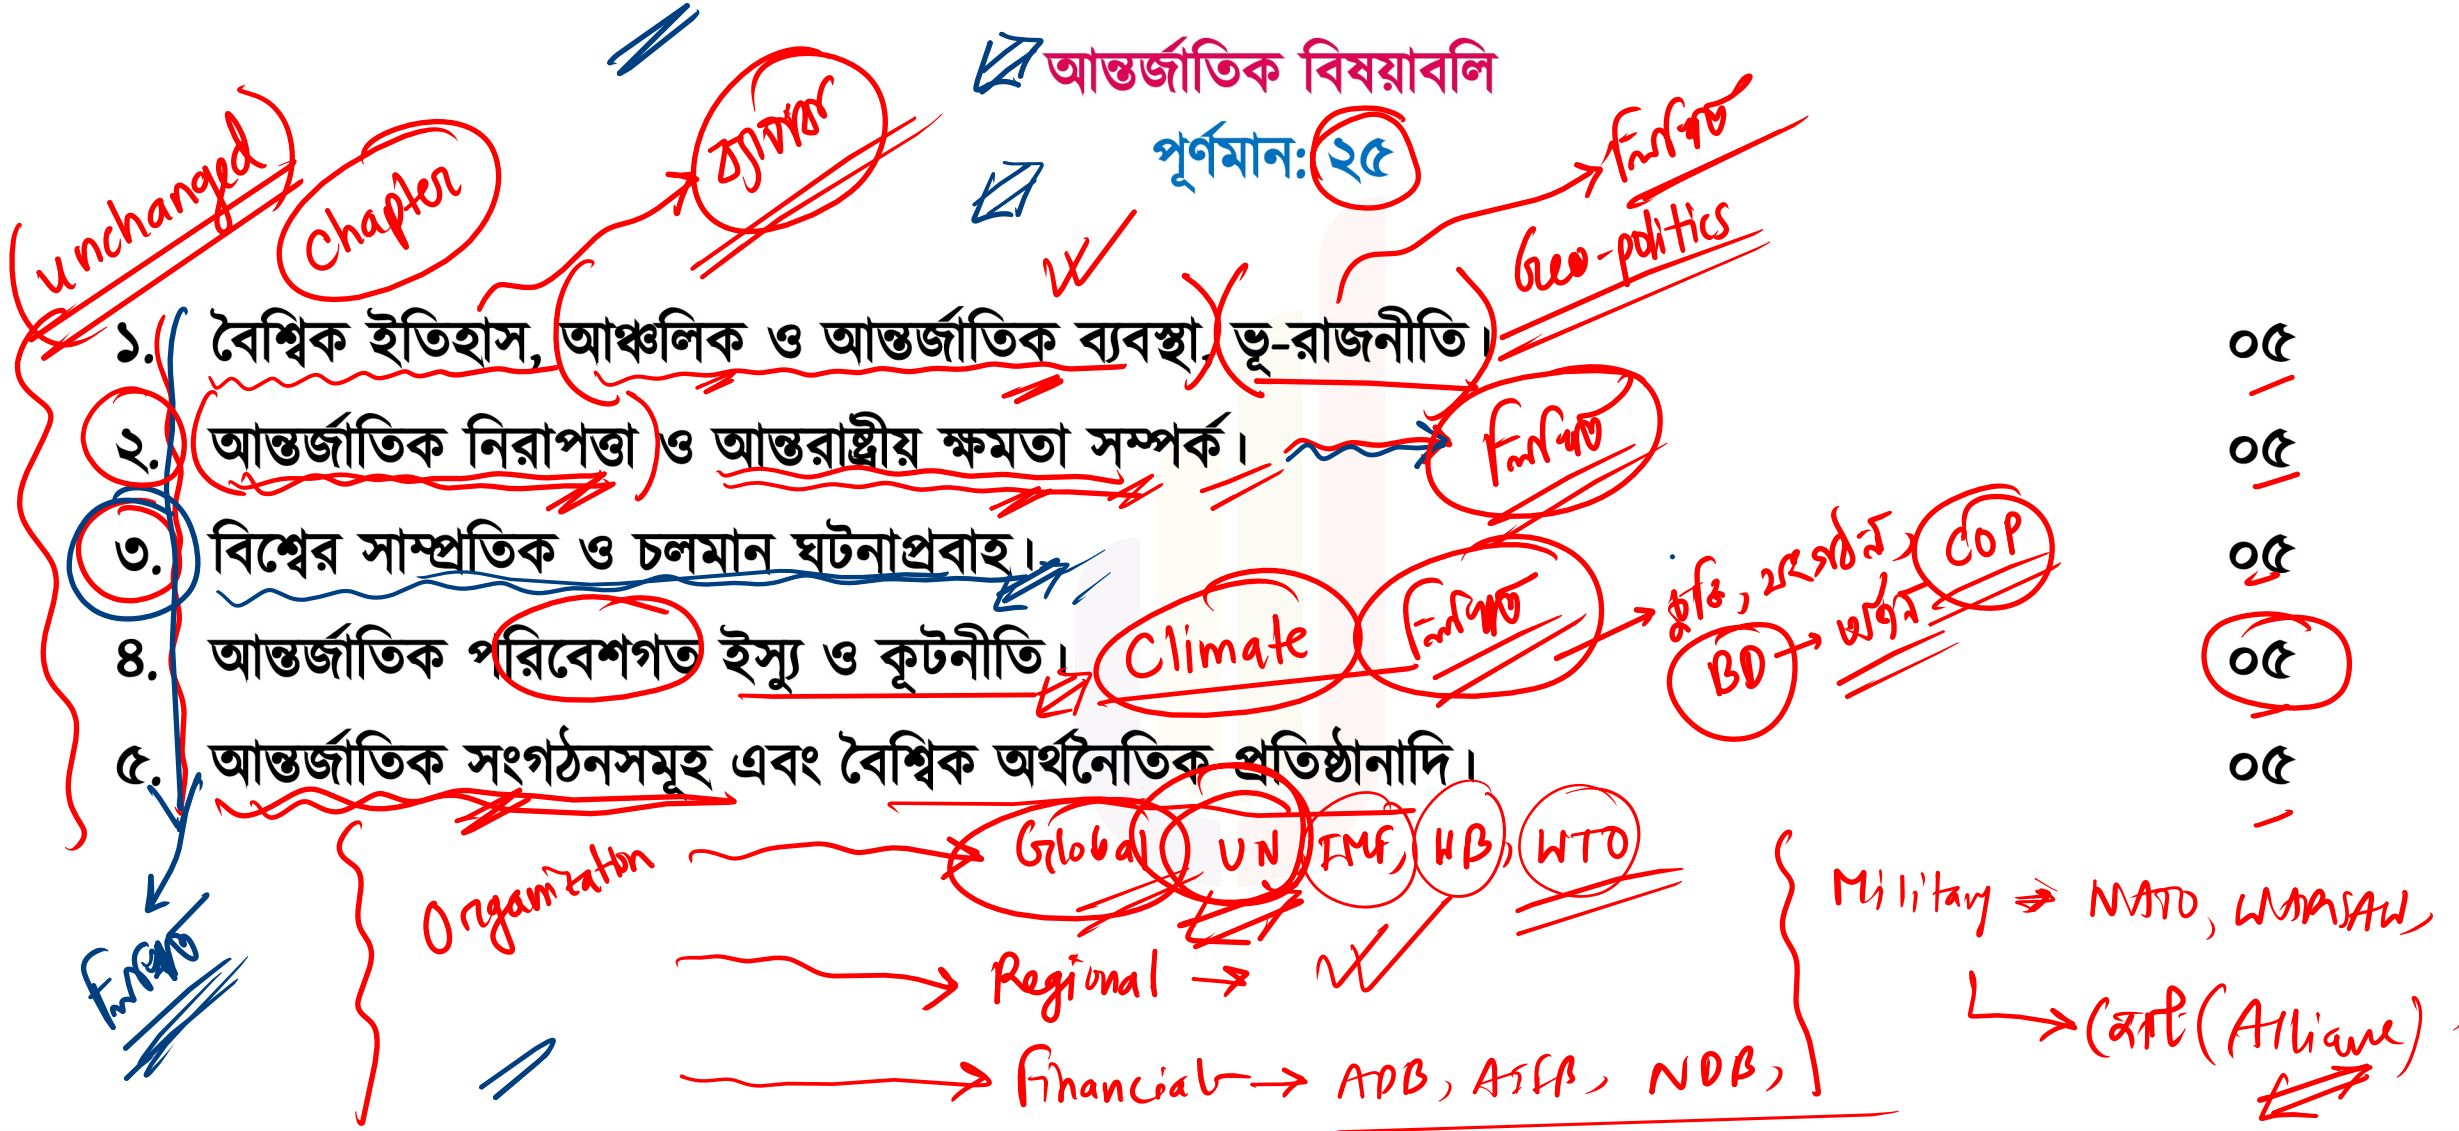 আন্তর্জাতিক বিষয়াবলি
পূর্ণমান: ২৫
unchanged
Chapter
ব্যাপক
লিখিত
Geo-politics
১. বৈশ্বিক ইতিহাস, আঞ্চলিক ও আন্তর্জাতিক ব্যবস্থা, ভূ-রাজনীতি। ০৫
২. আন্তর্জাতিক নিরাপত্তা ও আন্তরাষ্ট্রীয় ক্ষমতা সম্পর্ক। ০৫
লিখিত
৩. বিশ্বের সাম্প্রতিক ও চলমান ঘটনাপ্রবাহ। ০৫
৪. আন্তর্জাতিক পরিবেশগত ইস্যু ও কূটনীতি। ০৫
Climate লিখিত
চুক্তি, সংগঠন, COP
BD → অর্জন
৫. আন্তর্জাতিক সংগঠনসমূহ এবং বৈশ্বিক অর্থনৈতিক প্রতিষ্ঠানাদি। ০৫
লিখিত
Organization
Global UN IMF, WB, WTO
Regional →
Financial → ADB, AIIB, NDB,
Military ⇒ NATO, WARSAW,
জোট (Alliance)